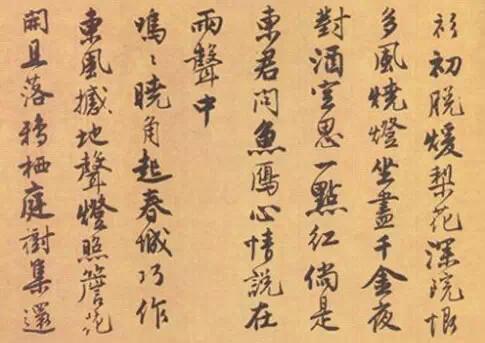 衫初脱煖梨花深院恨
多風燒燈坐盡千金夜
對酒空思一點紅倘是
東君問魚鴈心情說在
雨聲中
嗚〻曉角起春城巧作
東風撼地聲燈照簷花
開且落鴉栖庭樹集還